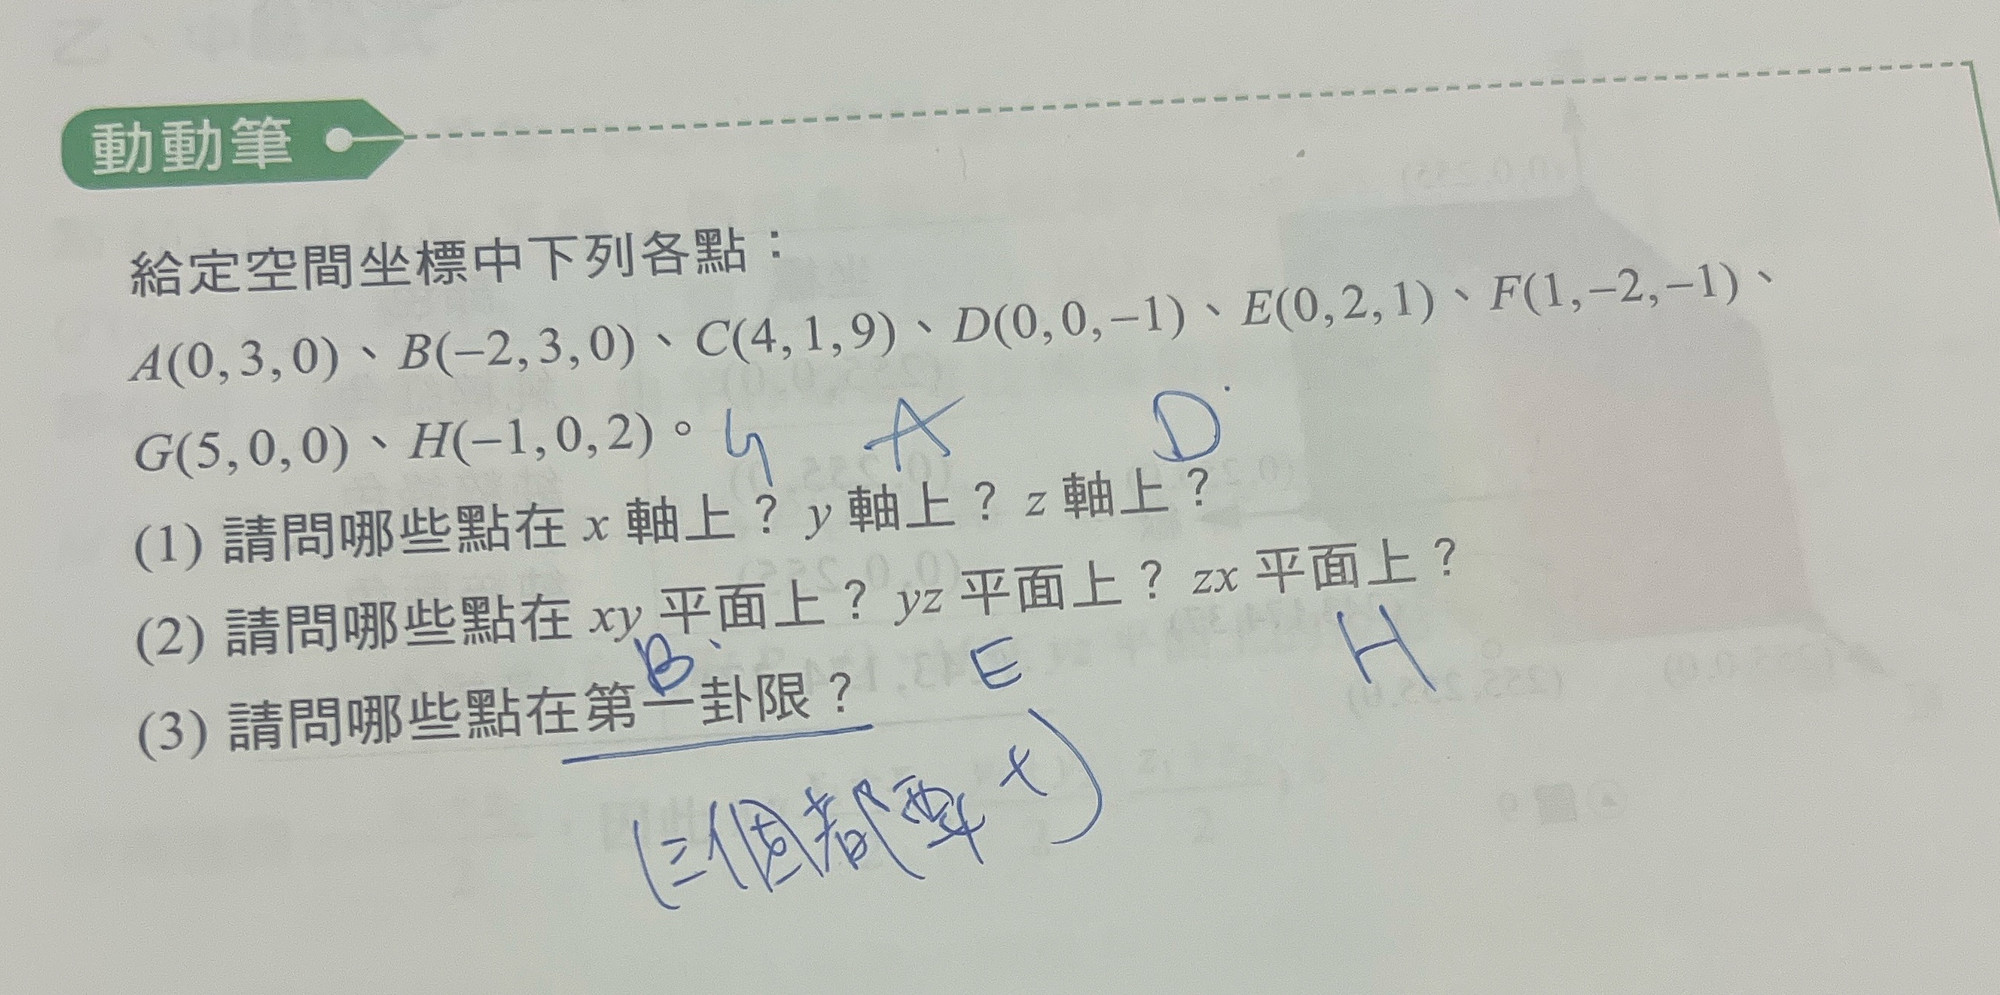 動動筆
給定空間坐標中下列各點：
A(0,3,0)、B(−2,3,0)、C(4,1,9)、D(0,0,−1)、E(0,2,1)、F(1,−2,−1)、
G(5,0,0)、H(−1,0,2)。
G A D
(1) 請問哪些點在 x 軸上？y 軸上？z 軸上？
(2) 請問哪些點在 xy 平面上？yz 平面上？zx 平面上？
B E H
(3) 請問哪些點在第一卦限？
(三個都要+)